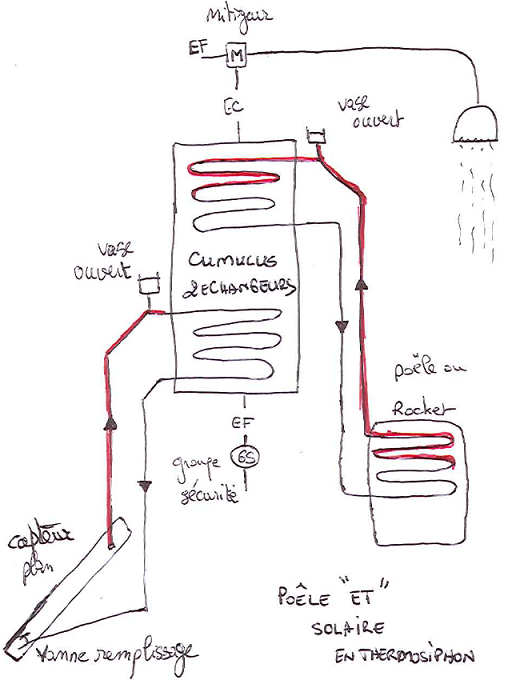 Mitigeur
EF
M
EC
vase
ouvert
vase
ouvert
CUMULUS
2 ECHANGEURS
poêle ou
Rocket
EF
GS
groupe
sécurité
capteur
plan
Vanne remplissage
POÊLE "ET"
SOLAIRE
EN THERMOSIPHON